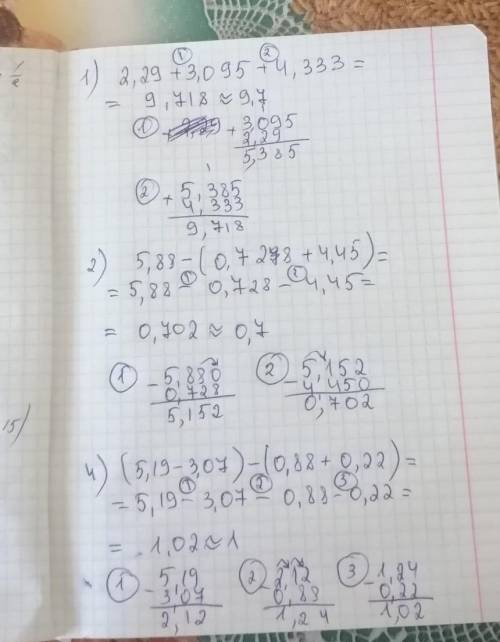 1) 2,29 + 3,095 + 4,333 =
= 9,718 ≈ 9,7
① + 3,095
2,29
5,385
② + 5,385
4,333
9,718
2) 5,88 - (0,728 + 4,45) =
= 5,88 - 0,728 - 4,45 =
= 0,702 ≈ 0,7
① - 5,880
0,728
5,152
② - 5,152
4,450
0,702
15)
4) (5,19 - 3,07) - (0,88 + 0,22) =
= 5,19 - 3,07 - 0,88 - 0,22 =
= 1,02 ≈ 1
① - 5,19
3,07
2,12
② - 2,12
0,88
1,24
③ - 1,24
0,22
1,02